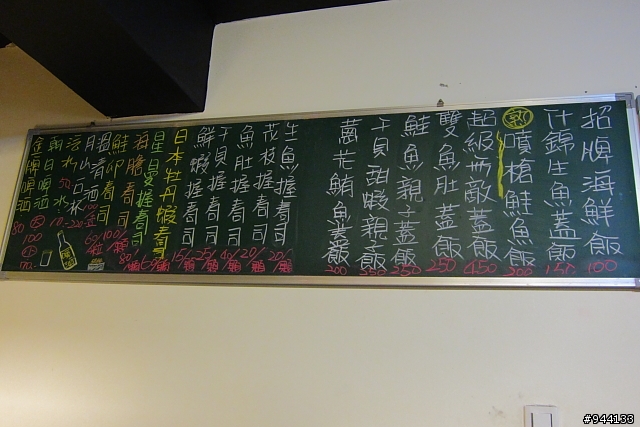 招牌海鮮飯 100
什錦生魚蓋飯 150
熟 噴槍鮭魚飯 200
超級無敵蓋飯 450
雙魚肚蓋飯 250
鮭魚親子蓋飯 250
干貝甜蝦親子飯 350
蔥花鮪魚蓋飯 200
生魚握壽司 20/顆
花枝握壽司 20/顆
魚肚握壽司 40/顆
干貝握壽司 25/顆
鮮蝦握壽司 15/顆
日本牡丹蝦壽司
星鰻握壽司
海膽壽司 80/顆
鮭卵壽司 100/顆
清酒
朝日啤酒
金牌啤酒 80
#944133